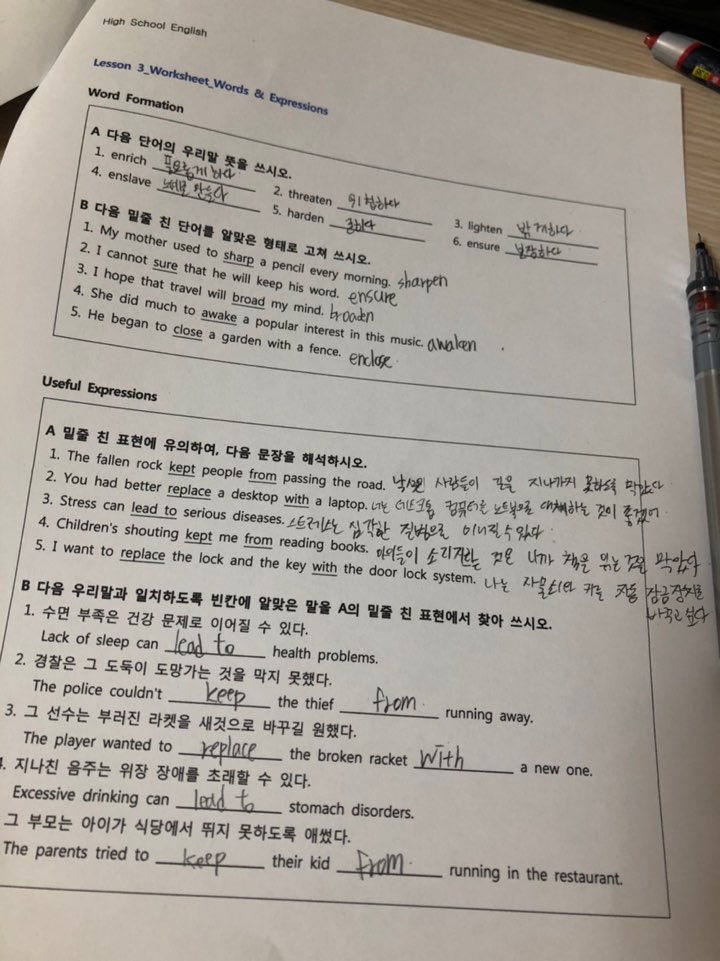 High School English
Lesson 3_Worksheet_Words & Expressions
Word Formation
A 다음 단어의 우리말 뜻을 쓰시오.
1. enrich 풍요롭게 하다 2. threaten 위협하다 3. lighten 밝게하다
4. enslave 노예로 만들다 5. harden 굳히다 6. ensure 보장하다
B 다음 밑줄 친 단어를 알맞은 형태로 고쳐 쓰시오.
1. My mother used to sharp a pencil every morning. sharpen
2. I cannot sure that he will keep his word. ensure
3. I hope that travel will broad my mind. broaden
4. She did much to awake a popular interest in this music. awaken
5. He began to close a garden with a fence. enclose
Useful Expressions
A 밑줄 친 표현에 유의하여, 다음 문장을 해석하시오.
1. The fallen rock kept people from passing the road. 낙석이 사람들이 길을 지나가지 못하도록 막았다
2. You had better replace a desktop with a laptop. 너는 데스크톱 컴퓨터를 노트북으로 대체하는 것이 좋겠어.
3. Stress can lead to serious diseases. 스트레스는 심각한 질병으로 이어질 수 있다.
4. Children's shouting kept me from reading books. 아이들이 소리지르는 것은 내가 책을 읽는 것을 막았다
5. I want to replace the lock and the key with the door lock system. 나는 자물쇠와 키를 자동 잠금장치로
바꾸고 싶다
B 다음 우리말과 일치하도록 빈칸에 알맞은 말을 A의 밑줄 친 표현에서 찾아 쓰시오.
1. 수면 부족은 건강 문제로 이어질 수 있다.
Lack of sleep can lead to health problems.
2. 경찰은 그 도둑이 도망가는 것을 막지 못했다.
The police couldn't keep the thief from running away.
3. 그 선수는 부러진 라켓을 새것으로 바꾸길 원했다.
The player wanted to replace the broken racket with a new one.
4. 지나친 음주는 위장 장애를 초래할 수 있다.
Excessive drinking can lead to stomach disorders.
그 부모는 아이가 식당에서 뛰지 못하도록 애썼다.
The parents tried to keep their kid from running in the restaurant.